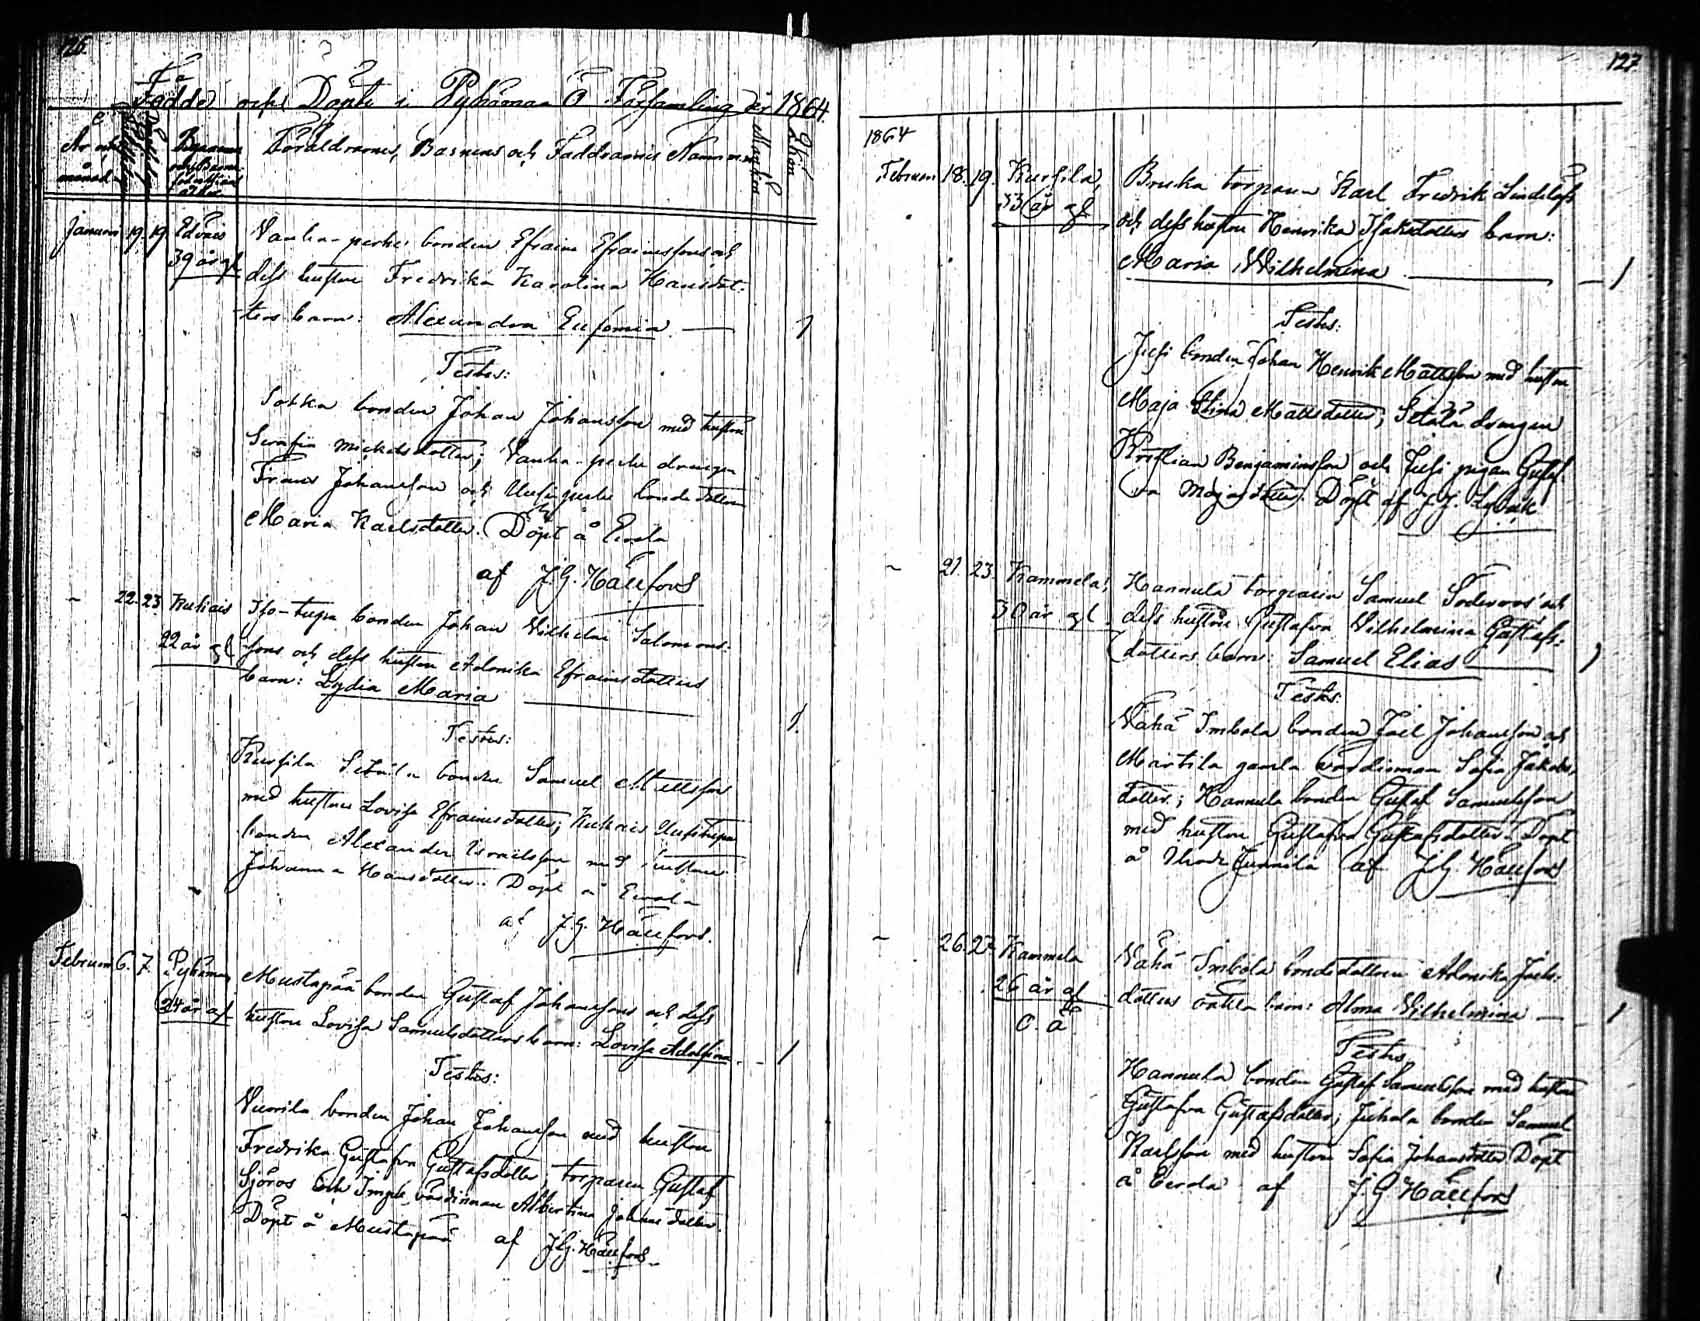 126.
Födde och Döpte i Pyhämaa Ö Församling år 1864.
År och månad
Föräldrarnes, Barnens och Faddrarnes Namn
Mankön
Qkön
Januari 19. 19 Edväis
39 år gl
Vanha-perhe bonden Efraim Efraimssons och
dess hustru Fredrika Karolina Hansdot-
ters barn: Alexandra Eufemia — 1
Testes:
Sokka bonden Johan Johansson med hustru
Serafia Mickelsdotter; Vanha-perhe drengen
Frans Johansson och Uusi-perhe bondedottern
Maria Karlsdotter. Döpt å
af J.G. Hällfors
" 22. 23. Kukais
22 år gl
Iso-tupa bonden Johan Vilhelm Salomons-
sons och dess hustru Adamika Efraimsdotters
barn: Lydia Maria — 1.
Testes:
Kursila Setälä bonden Samuel Mattsson
med hustru Lovisa Efraimsdotter; Kukais Uusitupa
bonden Alexander Israelsson med hustru
Johanna Hansdotter. Döpt å
af J.G. Hällfors.
Februari 6. 7. Pyhämaa
24 år gl.
Mustapää bonden Gustaf Johanssons och dess
hustru Lovisa Samuelsdotters barn: Lovisa Adolfina. — 1
Testes:
Vuorila bonden Johan Johansson med hustru
Fredrika Gustafva Gustafsdotter, torparen Gustaf
Sjöros och värdinnan Albertina Johansdotter.
Döpt å Mustapää af J.G. Hällfors.
127
1864
Februari 18. 19. Kursila,
33 år gl
torparen Karl Fredrik Lindelöfs
och dess hustru Henrika Isaksdotters barn:
Maria Wilhelmina — 1
Testes:
Jusi bonden Johan Henrik Mattsson med hustru
Maja Stina Mattsdotter; Setälä drengen
Kristian Benjaminsson och Jusi pigan Gustaf-
va Majasdotter. Döpt af J.G.
" 21. 23. Kammela,
30 år gl.
Hannula torparen Samuel Söderroos och
dess hustru Gustafva Vilhelmina Gustafs-
dotters barn: Samuel Elias — 1
Testes:
Vähä Imbola bonden Joel Johansson och
Marttila gamla värdinnan Sofia Jakobs-
dotter; Hannula bonden Gustaf Samuelsson
med hustru Gustafva Gustafsdotter. Döpt
å af J.G. Hällfors
" 26. 27. Kammela
26 år gl
O. Ä
Vähä Imbola bondedottern Adamika Joels-
dotters oäkta barn: Alma Vilhelmina — 1
Testes
Hannula bonden Gustaf Samuelsson med hustru
Gustafva Gustafsdotter; Juhola bonden Samuel
Karlsson med hustru Sofia Johansdotter Döpt
å af J.G. Hällfors